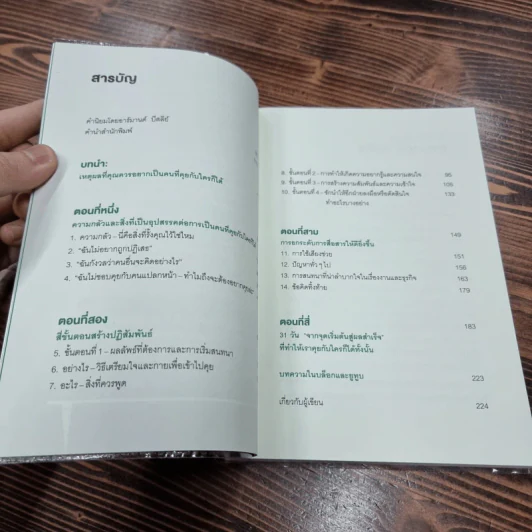 สารบัญ
คำนิยมโดยอาร์มานด์
คำนำสำนักพิมพ์
บทนำ:
เหตุผลที่คุณควรอยากเป็นคนที่คุยกับใครก็ได้
ตอนที่หนึ่ง
ความกลัวและสิ่งที่เป็นอุปสรรคต่อการเป็นคนที่คุยกับใครก็ได้
1. ความกลัว – นี่คือสิ่งที่รั้งคุณไว้ใช่ไหม
2. "ฉันไม่อยากถูกปฏิเสธ"
3. "ฉันกังวลว่าคนอื่นจะคิดอย่างไร"
4. "ฉันไม่ชอบคุยกับคนแปลกหน้า – ทำไมถึงจะต้องอยากคุยล่ะ"
ตอนที่สอง
สี่ขั้นตอนสร้างปฏิสัมพันธ์
5. ขั้นตอนที่ 1 – ผลลัพธ์ที่ต้องการและการเริ่มสนทนา
6. อย่างไร – วิธีเตรียมใจและกายเพื่อเข้าไปคุย
7. อะไร – สิ่งที่ควรพูด
8. ขั้นตอนที่ 2 – การทำให้เกิดความอยากรู้และความสนใจ 95
9. ขั้นตอนที่ 3 – การสร้างความสัมพันธ์และความเข้าใจ 109
10. ขั้นตอนที่ 4 – ชักนำให้อีกฝ่ายลงมือหรือตัดสินใจ 133
ทำอะไรบางอย่าง
ตอนที่สาม 149
การยกระดับการสื่อสารให้ดียิ่งขึ้น
11. การใช้เสียงช่วย 151
12. ปัญหาทั่วๆ ไป 158
13. การสนทนาที่น่าลำบากใจในเรื่องงานและธุรกิจ 163
14. ข้อคิดทิ้งท้าย 179
ตอนที่สี่ 183
31 วัน "จากจุดเริ่มต้นสู่ผลสำเร็จ"
ที่ทำให้เราคุยกับใครก็ได้ทั้งนั้น
บทความในบล็อกและยูทูบ 223
เกี่ยวกับผู้เขียน 224